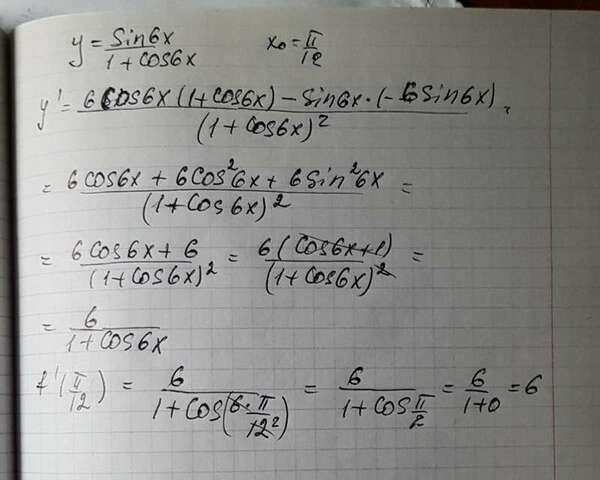 y = sin6x / 1 + cos6x    x₀ = π/12
y' = 6 cos6x (1 + cos6x) - sin6x · (-6 sin6x) / (1 + cos6x)² =
= 6 cos6x + 6 cos²6x + 6 sin²6x / (1 + cos 6x)² =
= 6 cos6x + 6 / (1 + cos6x)² = 6 (cos6x + 1) / (1 + cos6x)² =
= 6 / 1 + cos6x
f'(π/12) = 6 / 1 + cos(6·π/12 2) = 6 / 1 + cos π/2 = 6 / 1+0 = 6